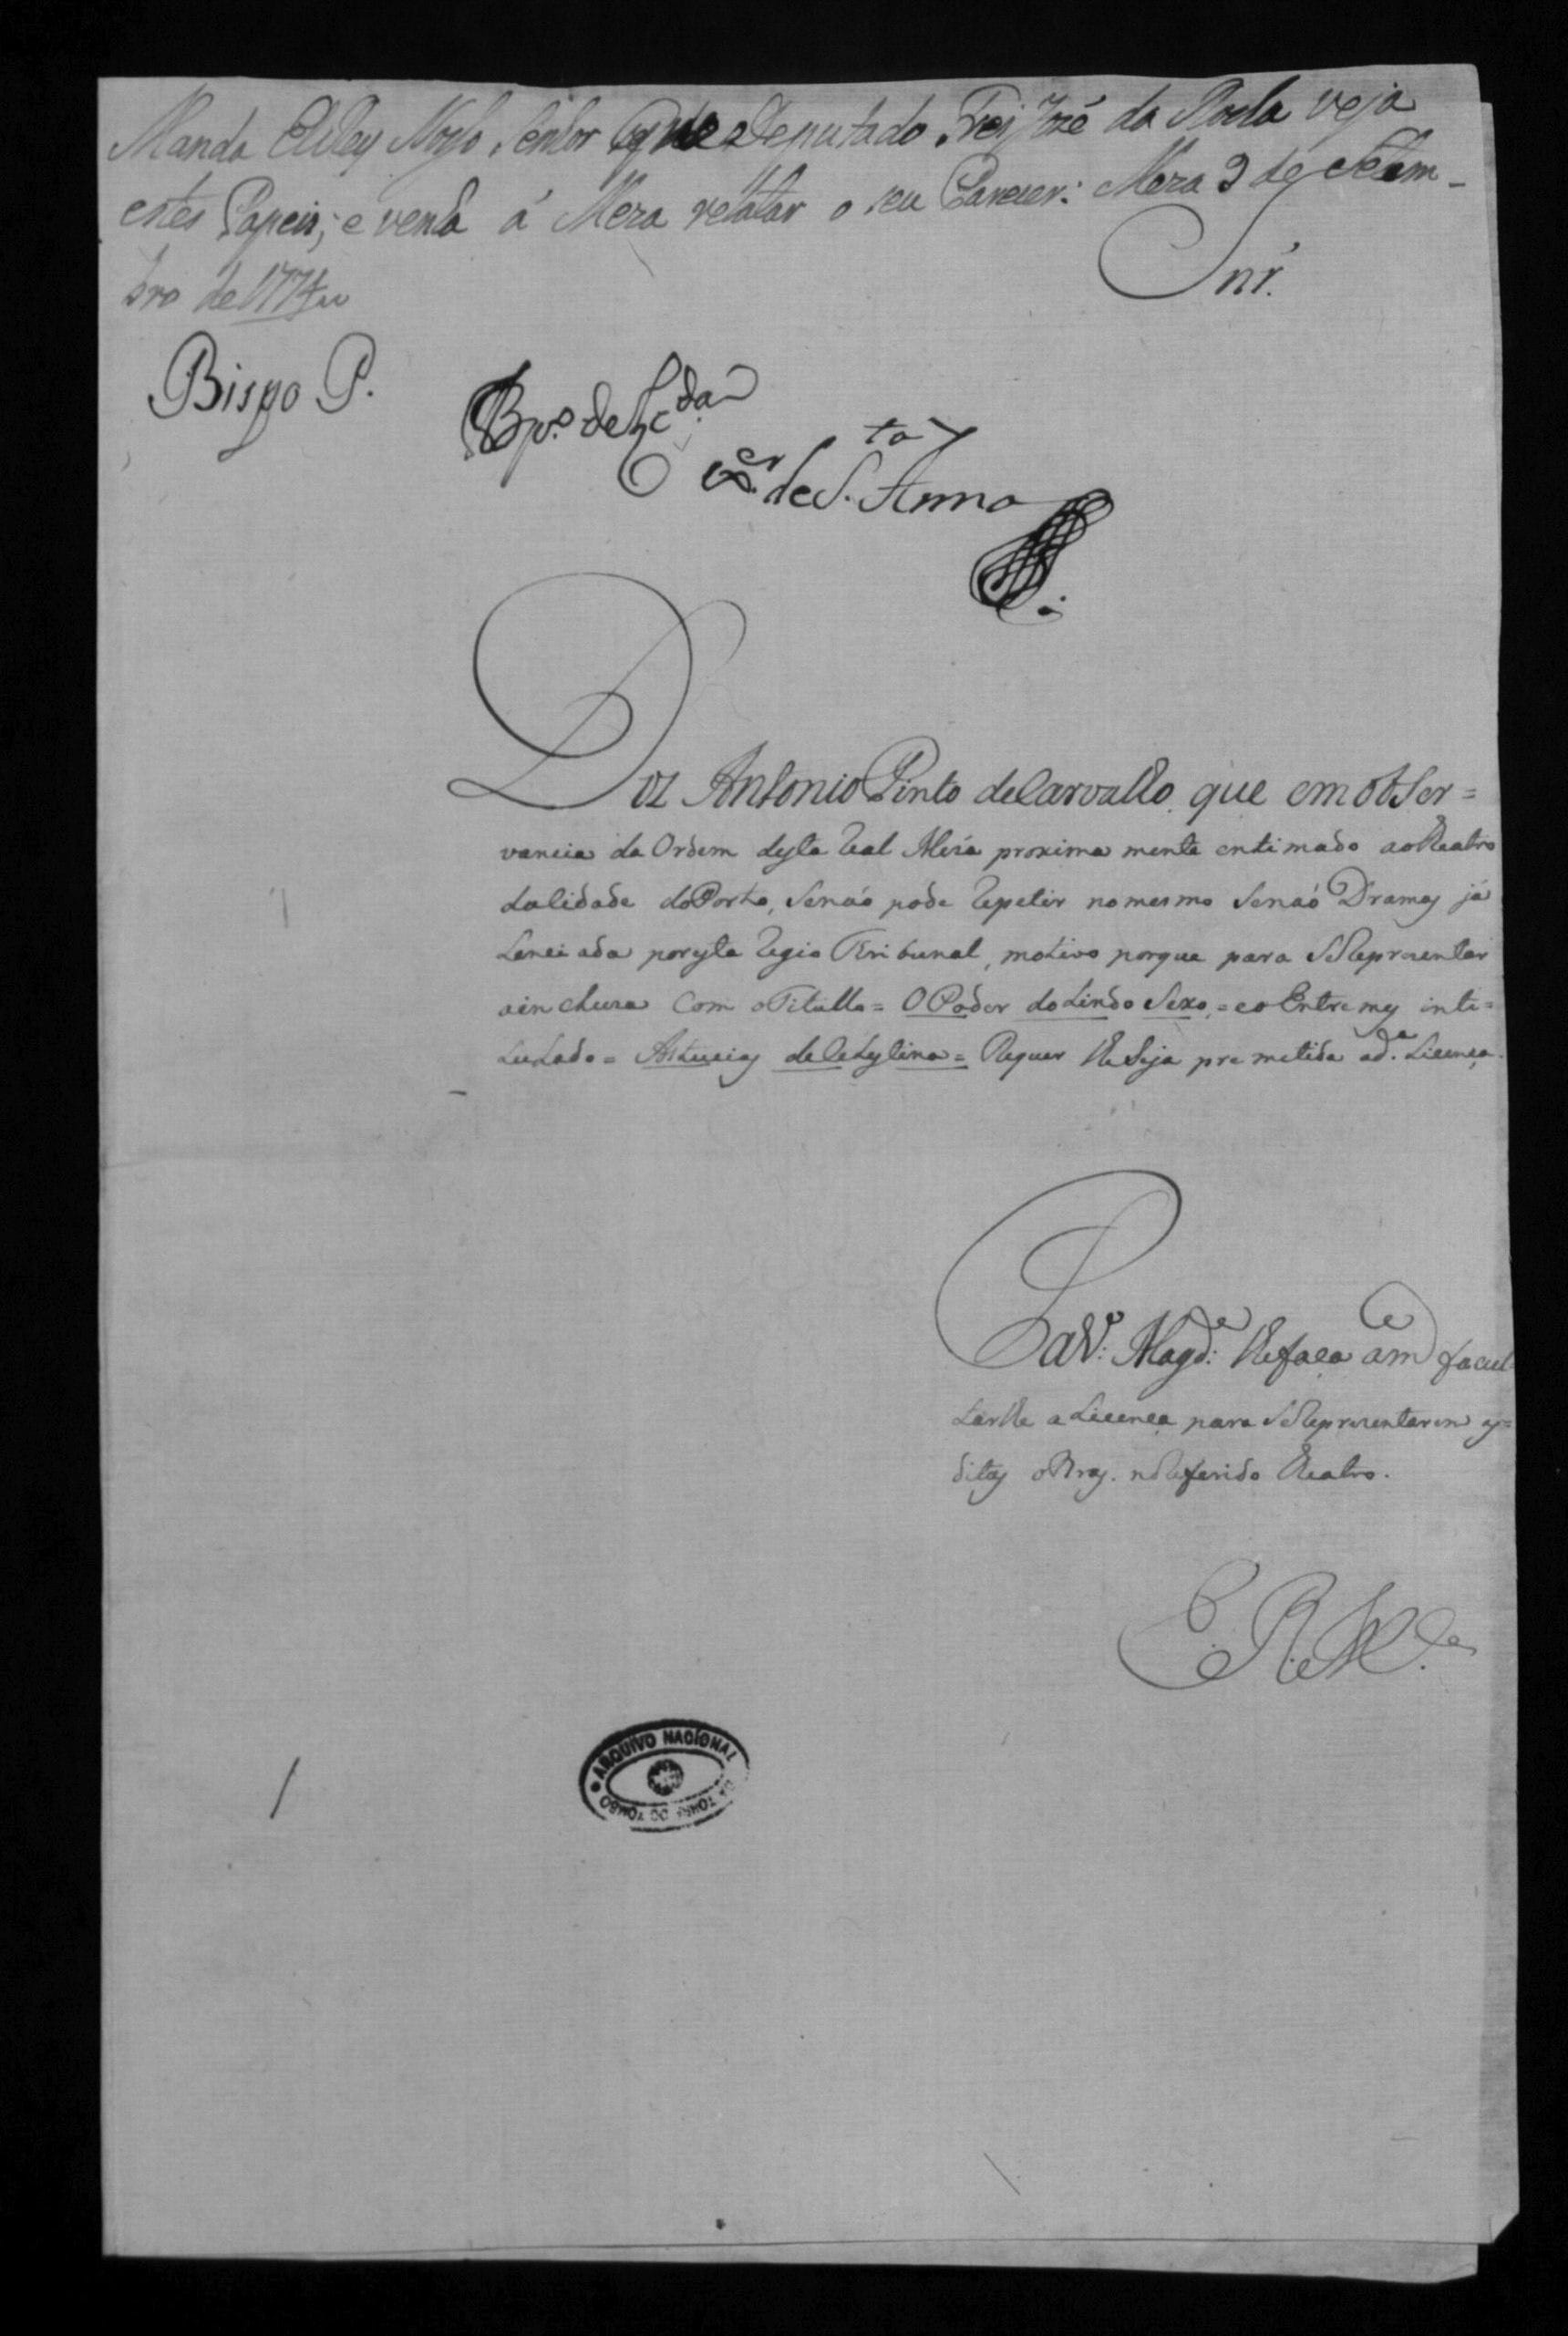 Manda ElRey Nosso Senhor que o Deputado Frei Jozé da Rocha veja
estes Papeis, e venha á Meza relatar o seu Parecer: Meza 9 de Setem-
bro de 1774
Snr.
Bispo P.
Bp.º de
de S.ta Anna
Diz Antonio Pinto de Carvalho, que em obser=
vancia da Ordem desta Real Meza proxima mente entimado ao Theatro
da Cidade do Porto, se naó pode repetir no mesmo senaó Dramas já
Lenciada por este Regio Tribunal, motivo porque para se Reprezentar
a incluza com o Titullo = O Poder do Lindo Sexo, = e o Entremes inti=
tulado = Astucias de Celestina = Requer lhe seja premetida a d.a Licença.
P a V. Magd.e lhe faça a m.ce facul
tarlhe a Licença para se Reprezentarem as=
ditas obras. no Referido Theatro.
E. R. M.ce
ARQUIVO NACIONAL
DA TORRE DO TOMBO